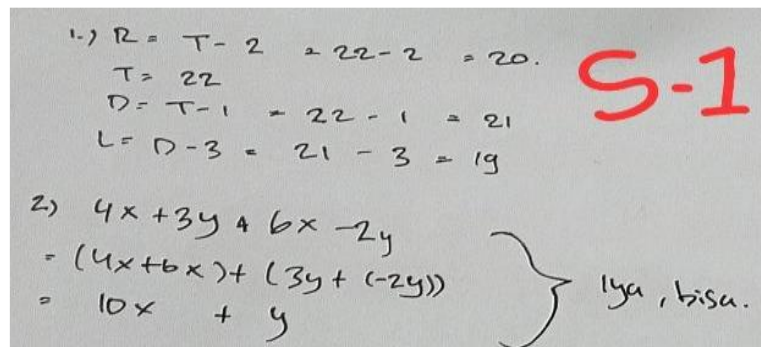 1.) R = T - 2 = 22 - 2 = 20.
T = 22
D = T - 1 = 22 - 1 = 21
L = D - 3 = 21 - 3 = 19
S-1
2) 4x + 3y + 6x - 2y
= (4x + 6x) + (3y + (-2y))
= 10x + y
Iya, bisa.